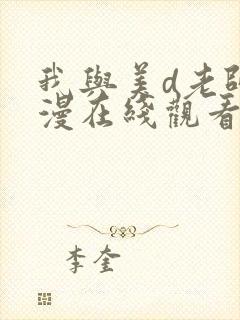 我與美d老師
漫在綫觀看
李奎